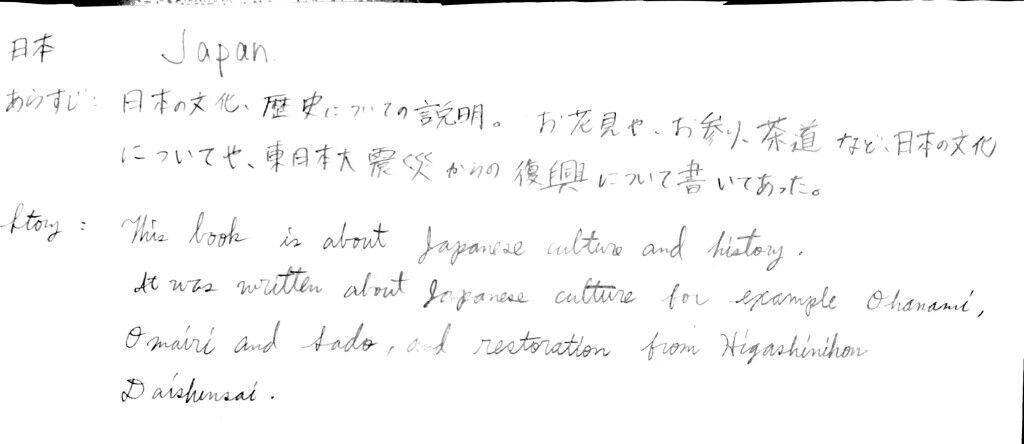 日本 Japan
あらすじ: 日本の文化、歴史についての説明。お花見や、お参り、茶道など、日本の文化
についてや、東日本大震災からの復興について書いてあった。
Story: This book is about Japanese culture and history.
It was written about Japanese culture for example Ohanami,
Omairi and Sado, and restoration from Higashinihon
Daishinsai.